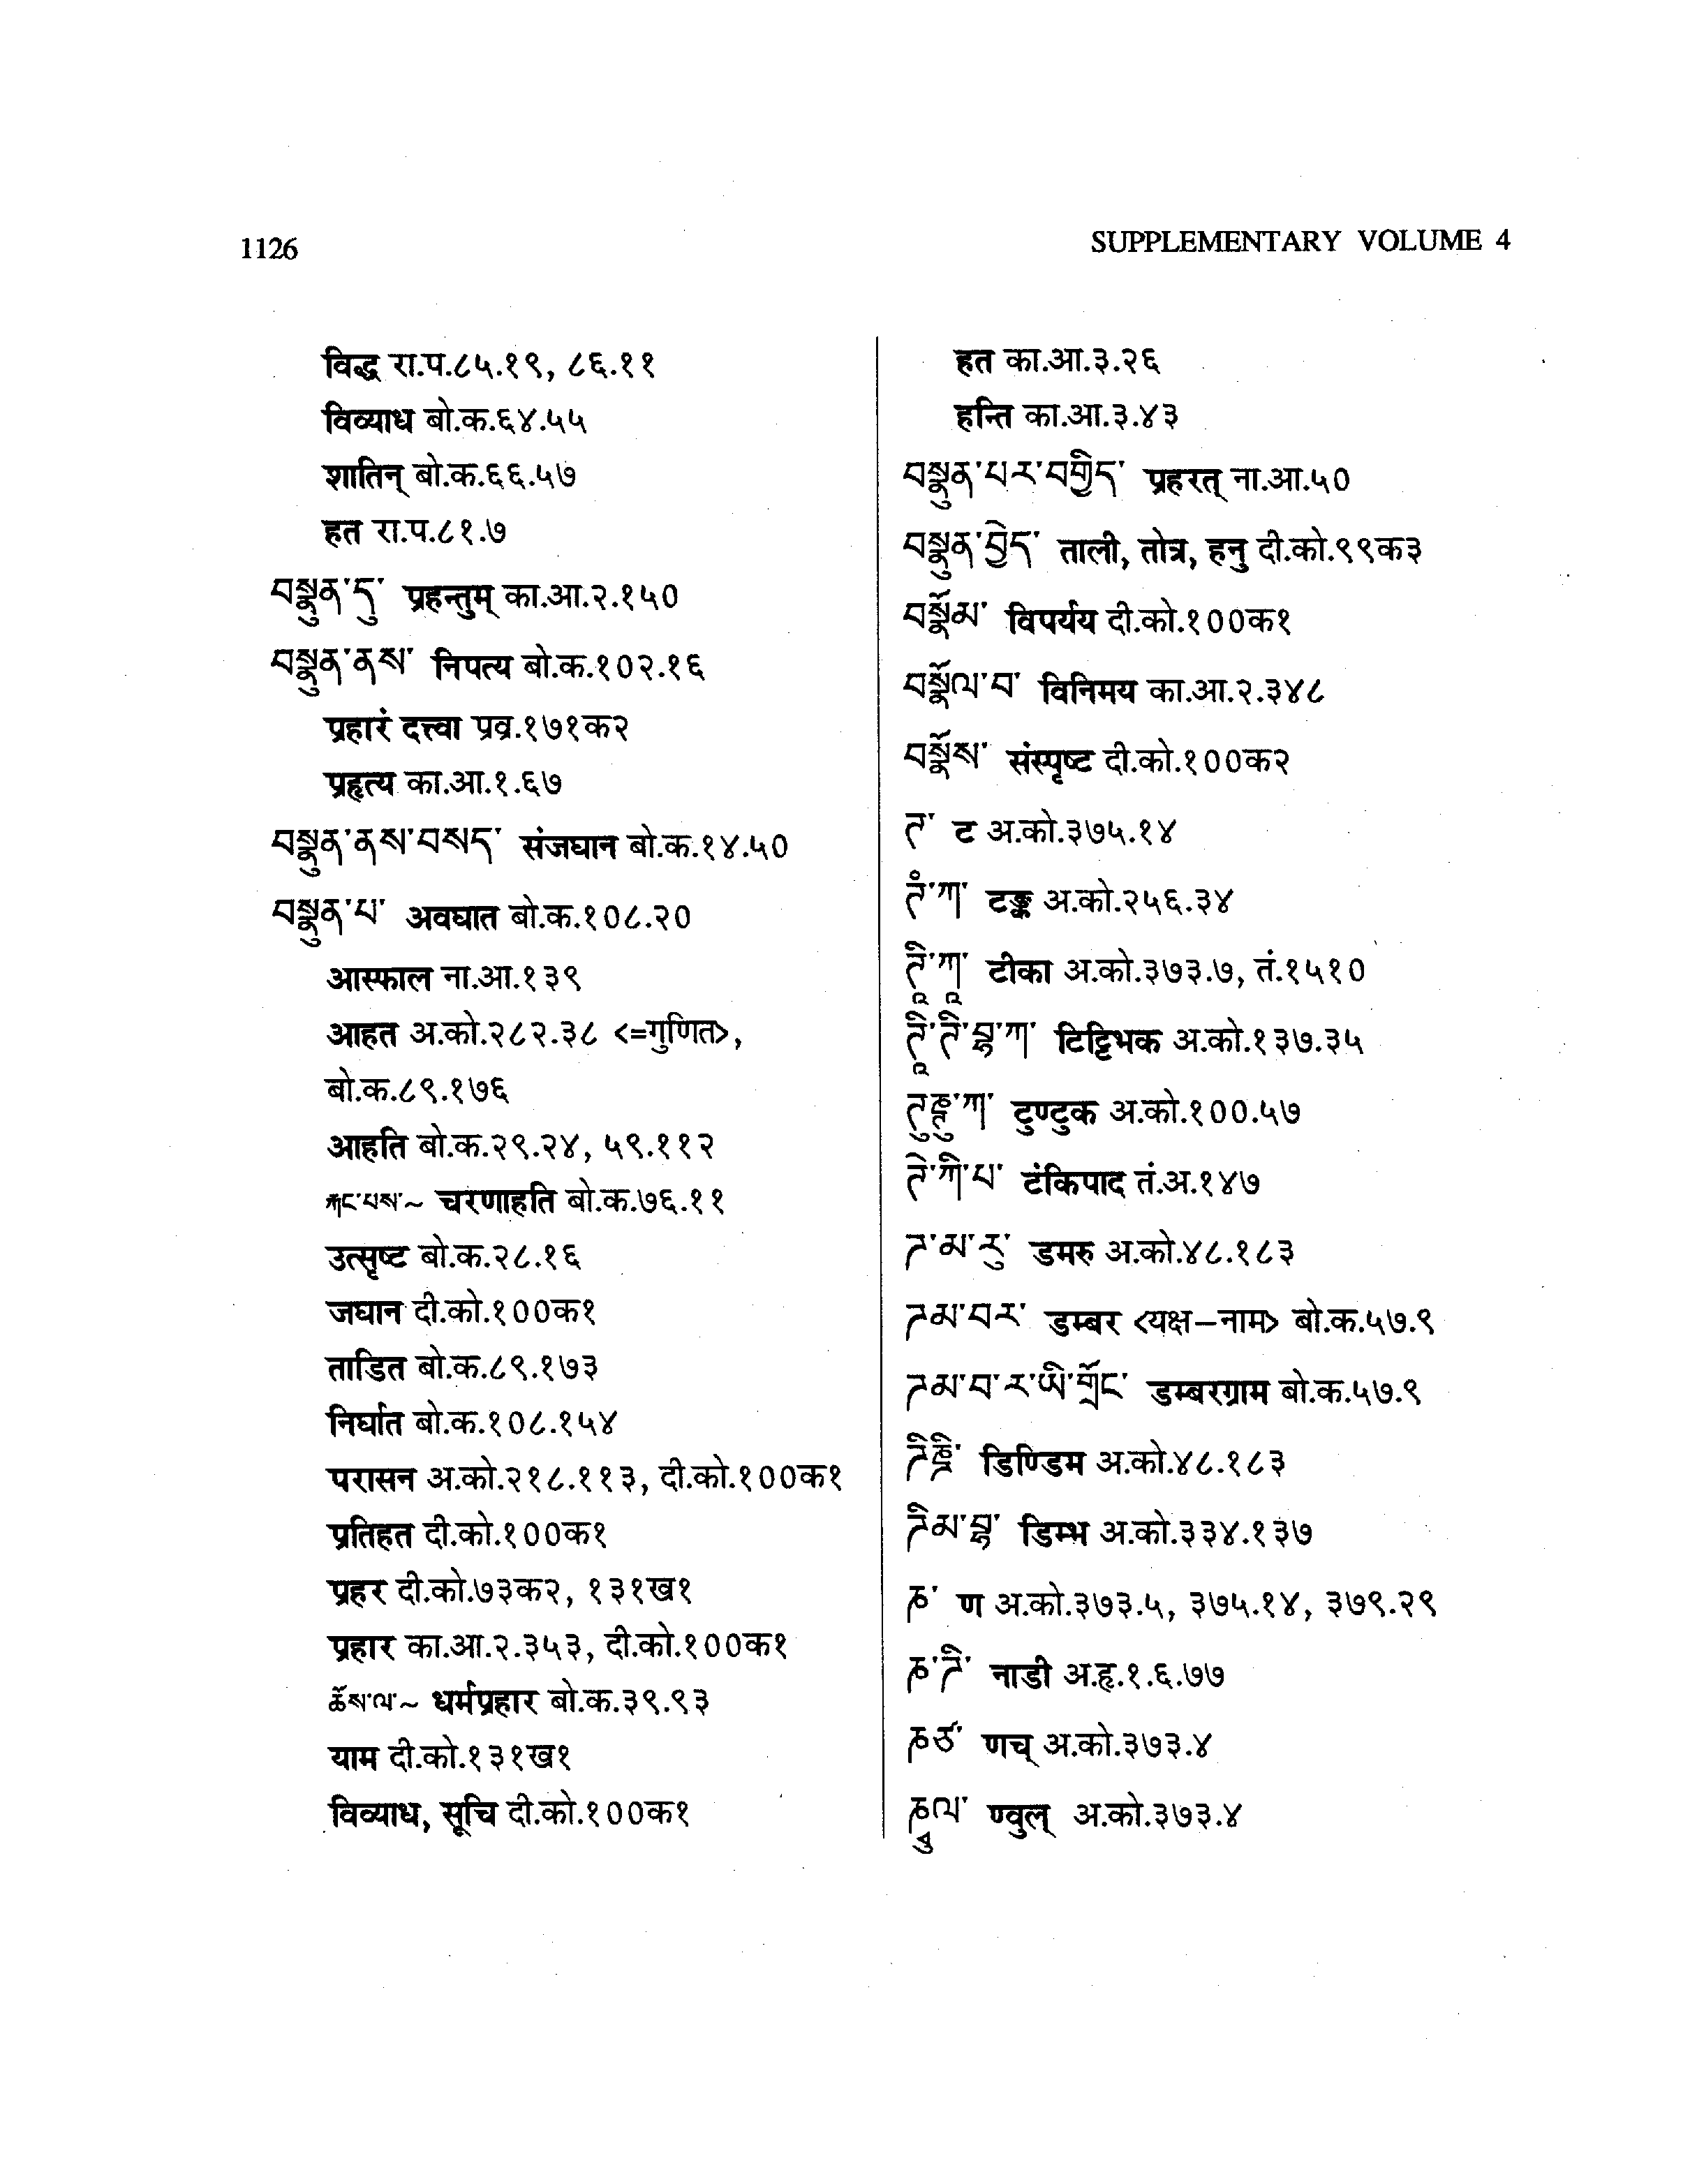 1126
SUPPLEMENTARY VOLUME 4
विद्ध रा.प.८५.१९, ८६.११
विव्याध बो.क.६४.५५
शातिन् बो.क.६६.५७
हत रा.प.८१.७
བསྣུན་དུ་ प्रहन्तुम् का.आ.२.१५०
བསྣུན་ནས་ निपत्य बो.क.१०२.१६
प्रहारं दत्त्वा प्रव्र.१७१क२
प्रहृत्य का.आ.१.६७
བསྣུན་ནས་བསད་ संजघान बो.क.१४.५०
བསྣུན་པ་ अवघात बो.क.१०८.२०
आस्फाल ना.आ.१३९
आहत अ.को.२८२.३८ <=गुणित>,
बो.क.८९.१७६
आहति बो.क.२९.२४, ५९.११२
རྐང་པས་~ चरणाहति बो.क.७६.११
उत्सृष्ट बो.क.२८.१६
जघान दी.को.१००क१
ताडित बो.क.८९.१७३
निर्घात बो.क.१०८.१५४
परासन अ.को.२१८.११३, दी.को.१००क१
प्रतिहत दी.को.१००क१
प्रहर दी.को.७३क२, १३१ख१
प्रहार का.आ.२.३५३, दी.को.१००क१
ཆོས་ལ་~ धर्मप्रहार बो.क.३९.९३
याम दी.को.१३१ख१
विव्याध, सूचि दी.को.१००क१
हत का.आ.३.२६
हन्ति का.आ.३.४३
བསྣུན་པར་བགྱིད་ प्रहरत् ना.आ.५०
བསྣུན་བྱེད་ ताली, तोत्र, हनु दी.को.९९क३
བསྣོམ་ विपर्यय दी.को.१००क१
བསྣོལ་བ་ विनिमय का.आ.२.३४८
བསྣོས་ संस्पृष्ट दी.को.१००क२
ཊ་ ट अ.को.३७५.१४
ཊཾ་ཀ་ टङ्क अ.को.२५६.३४
ཊཱི་ཀཱ་ टीका अ.को.३७३.७, तं.१५१०
ཊཱི་ཊི་བྷ་ཀ་ टिट्टिभक अ.को.१३७.३५
ཊུཎྚུ་ཀ་ टुण्टुक अ.को.१००.५७
ཊེ་ཀི་པ་ टंकिपाद तं.अ.१४७
ཌ་མ་རུ་ डमरु अ.को.४८.१८३
ཌམ་བར་ डम्बर <यक्ष-नाम> बो.क.५७.९
ཌམ་བ་ར་ཡི་གྲོང་ डम्बरग्राम बो.क.५७.९
ཌིཎྜི་ डिण्डिम अ.को.४८.१८३
ཌིམ་བྷ་ डिम्भ अ.को.३३४.१३७
ཎ་ ण अ.को.३७३.५, ३७५.१४, ३७९.२९
ཎ་ཌི་ नाडी अ.हृ.१.६.७७
ཎཙ་ णच् अ.को.३७३.४
ཎྭུལ་ ण्वुल् अ.को.३७३.४